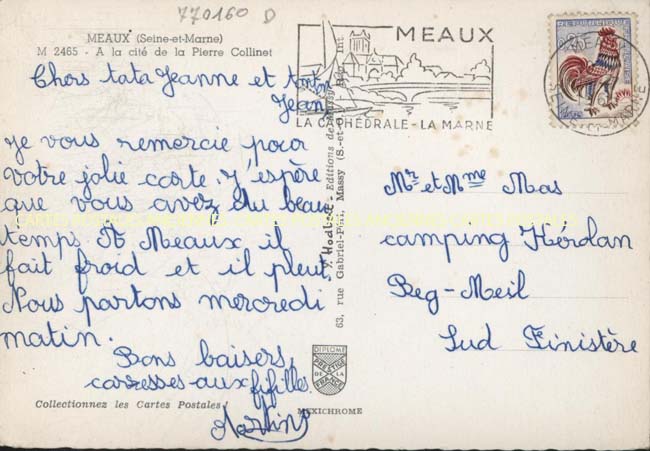 770160 D
MEAUX (Seine-et-Marne)
M 2465 - A la cité de la Pierre Collinet
Chers tata Jeanne et tonton
Jean
Je vous remercie pour
votre jolie carte. J'espère
que vous avez du beau
temps. A Meaux il
fait froid et il pleut
Nous partons mercredi
matin.
Bons baisers
caresses aux fifilles.
Martine
Collectionnez les Cartes Postales!
MEAUX
LA CATHÉDRALE - LA MARNE
Editions de
63, rue Gabriel-Péri, Massy (S.-et-O.)
DIPLOME
PRESTIGE
DE LA
FRANCE
MEXICHROME
Mr et Mme Mas
camping Kérolan
Beg-Meil
Sud Finistère